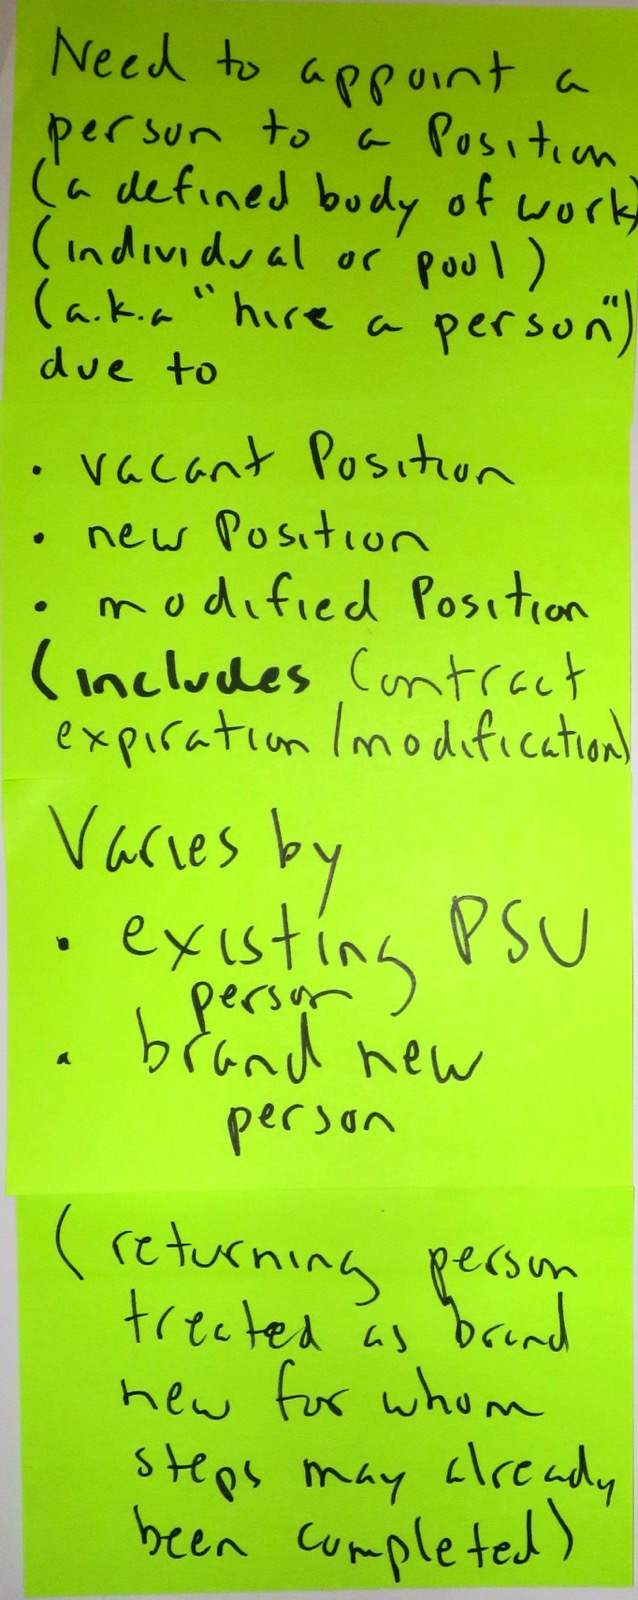 Need to appoint a
person to a Position
(a defined body of work)
(individual or pool)
(a.k.a "hire a person")
due to
• vacant Position
• new Position
• modified Position
(includes Contract
expiration/modification)
Varies by
• existing PSU
person
• brand new
person
(returning person
treated as brand
new for whom
steps may already
been completed)